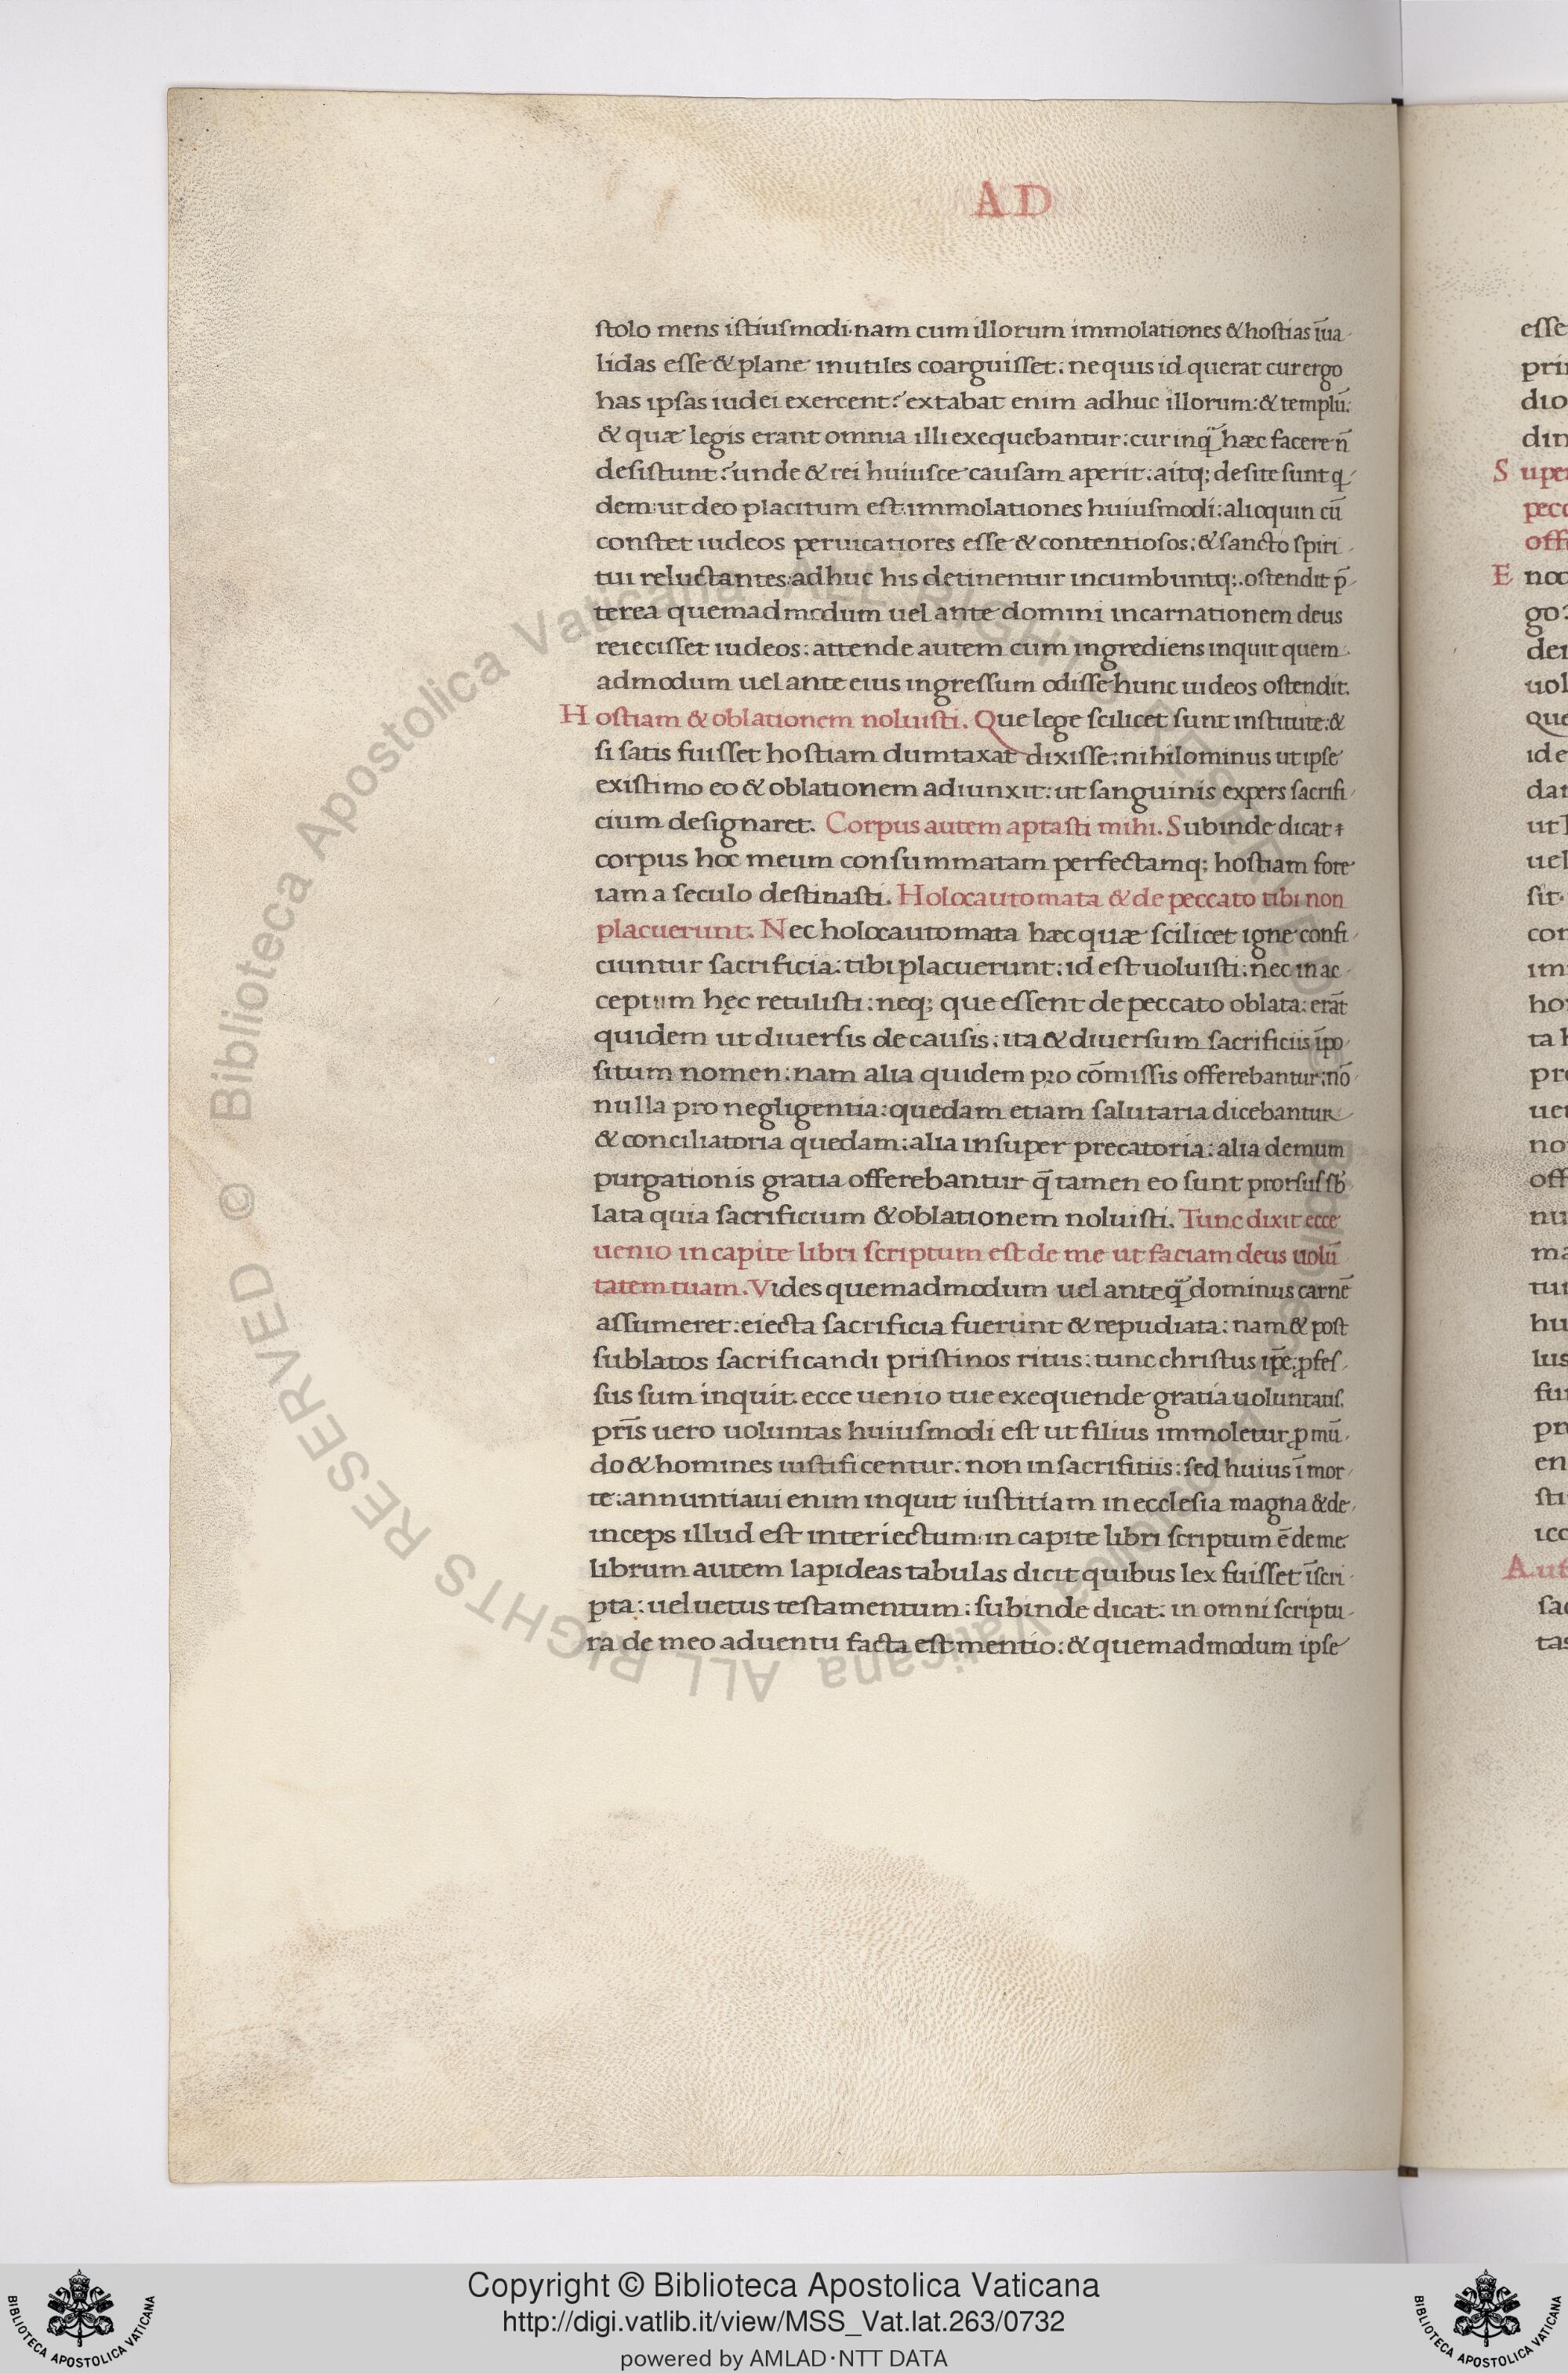 AD
stolo mens istiusmodi·nam cum illorum immolationes & hostias īua
lidas esse & plane inutiles coarguisset: ne quis id querat cur ergo
has ipsas iudei exercent? extabat enim adhuc illorum: & templū:
& quæ legis erant omnia illi exequebantur: cur inq̃ hæc facere n̄
desistunt? unde & rei huiusce causam aperit: aitq; desite sunt q
dem: ut deo placitum est: immolationes huiusmodi: alioquin cū
constet iudeos peruicatiores esse & contentiosos: & sancto spiri
tui reluctantes: adhuc his detinentur incumbuntq;: ostendit p̄
terea quemadmodum uel ante domini incarnationem deus
reiecisset iudeos: attende autem cum ingrediens inquit quem
admodum uel ante eius ingressum odisse hunc iudeos ostendit.
Hostiam & oblationem noluisti. Que lege scilicet sunt institute: &
si satis fuisset hostiam dumtaxat dixisse: nihilominus ut ipse
existimo eo & oblationem adiunxit: ut sanguinis expers sacrifi
cium designaret. Corpus autem aptasti mihi. Subinde dicat:
corpus hoc meum consummatam perfectamq; hostiam fore
iam a seculo destinasti. Holocautomata & de peccato tibi non
placuerunt. Nec holocautomata hæc quæ scilicet igne confi
ciuntur sacrificia: tibi placuerunt: id est uoluisti: nec in ac
ceptum hęc retulisti: neq; que essent de peccato oblata: erāt
quidem ut diuersis de causis: ita & diuersum sacrificiis īpo
situm nomen: nam alia quidem pro cōmissis offerebantur: nō
nulla pro negligentia: quedam etiam salutaria dicebantur
& conciliatoria quedam: alia insuper precatoria: alia demum
purgationis gratia offerebantur q̄ tamen eo sunt prorsus sb
lata quia sacrificium & oblationem noluisti. Tunc dixit ecce
uenio in capite libri scriptum est de me ut faciam deus uolū
tatem tuam. Vides quemadmodum uel anteq̃ dominus carnē
assumeret: eiecta sacrificia fuerunt & repudiata: nam & post
sublatos sacrificandi pristinos ritus: tunc christus ip̄e: ꝓfes
sus sum inquit. ecce uenio tue exequende gratia uoluntatis.
pr̄is uero uoluntas huiusmodi est ut filius immoletur ꝓ mū
do & homines iustificentur: non in sacrifitiis: sed huius ī mor
te: annuntiaui enim inquit iustitiam in ecclesia magna & de
inceps illud est interiectum: in capite libri scriptum ē de me:
librum autem lapideas tabulas dicit quibus lex fuisset īscri
pta: uel uetus testamentum: subinde dicat: in omni scriptu
ra de meo aduentu facta est mentio: & quemadmodum ipse
Copyright © Biblioteca Apostolica Vaticana
http://digi.vatlib.it/view/MSS_Vat.lat.263/0732
powered by AMLAD·NTT DATA